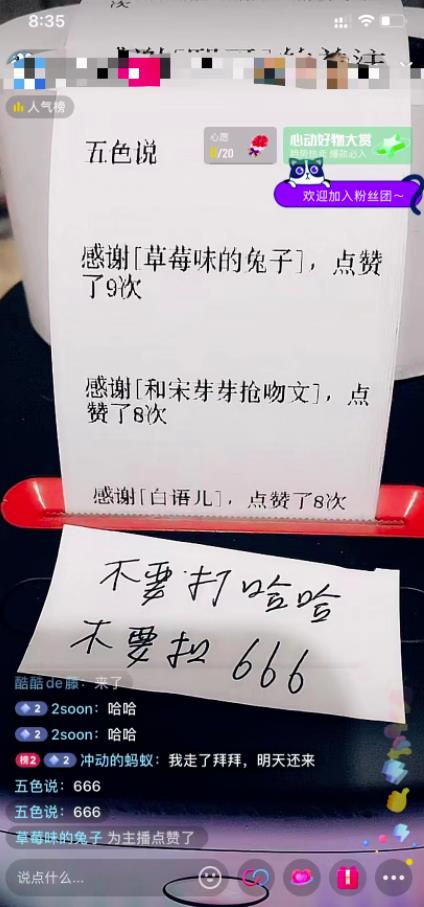 8:35
人气榜
五色说
心愿
0/20
心动好物大赏
欢迎加入粉丝团~
感谢[草莓味的兔子],点赞
了9次
感谢[和宋芽芽抢吻文],点
赞了8次
感谢[白语儿],点赞了8次
不要打哈哈
不要扣666
酷酷de藤:来了
2 2soon:哈哈
2 2soon:哈哈
榜2 2 冲动的蚂蚁:我走了拜拜,明天还来
五色说:666
五色说:666
草莓味的兔子 为主播点赞了
说点什么...